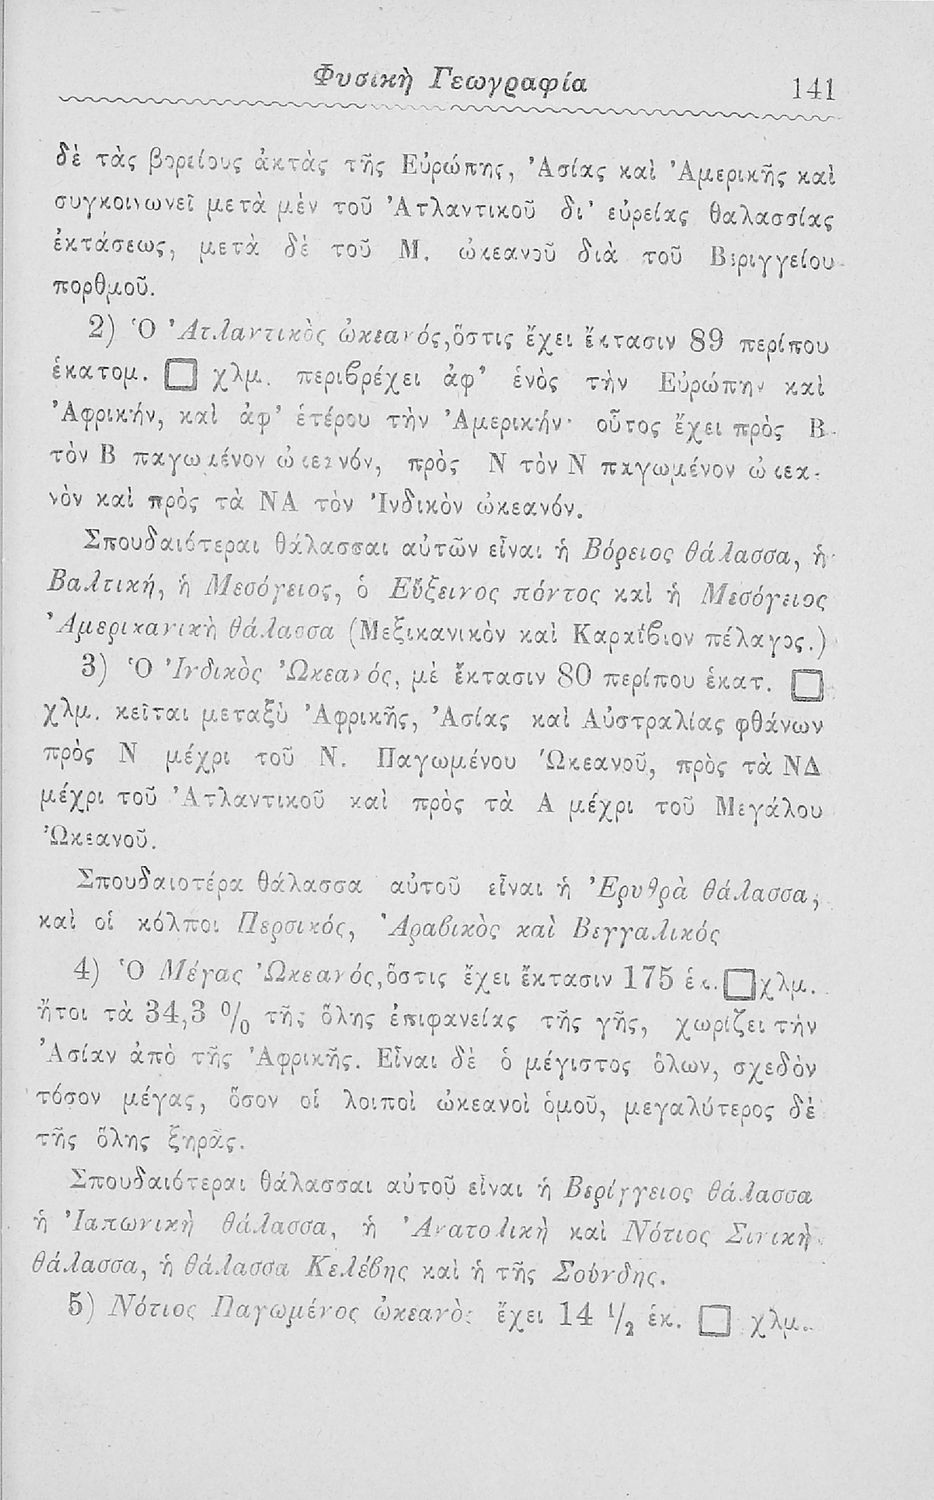 Φυσικὴ Γεωγραφία 141
δὲ τὰς βορείους ἀκτὰς τῆς Εὐρώπης, Ἀσίας καὶ Ἀμερικῆς καὶ
συγκοινωνεῖ μετὰ μὲν τοῦ Ἀτλαντικοῦ δι' εὐρείας θαλασσίας
ἐκτάσεως, μετὰ δὲ τοῦ Μ. ὠκεανοῦ διὰ τοῦ Βεριγγείου
πορθμοῦ.
2) Ὁ Ἀτλαντικὸς ὠκεανός, ὅστις ἔχει ἔκτασιν 89 περίπου
ἑκατομ. □ χλμ. περιβρέχει ἀφ' ἑνὸς τὴν Εὐρώπην καὶ
Ἀφρικήν, καὶ ἀφ' ἑτέρου τὴν Ἀμερικήν· οὗτος ἔχει πρὸς Β
τὸν Β παγωμένον ὠκεανόν, πρὸς Ν τὸν Ν παγωμένον ὠκεα-
νὸν καὶ πρὸς τὰ ΝΑ τὸν Ἰνδικὸν ὠκεανόν.
Σπουδαιότεραι θάλασσαι αὐτῶν εἶναι ἡ Βόρειος θάλασσα, ἡ
Βαλτική, ἡ Μεσόγειος, ὁ Εὔξεινος πόντος καὶ ἡ Μεσόγειος
Ἀμερικανικὴ θάλασσα (Μεξικανικὸν καὶ Καραΐβιον πέλαγος.)
3) Ὁ Ἰνδικὸς Ὠκεανός, μὲ ἔκτασιν 80 περίπου ἑκατ. □
χλμ. κεῖται μεταξὺ Ἀφρικῆς, Ἀσίας καὶ Αὐστραλίας φθάνων
πρὸς Ν μέχρι τοῦ Ν. Παγωμένου Ὠκεανοῦ, πρὸς τὰ ΝΔ
μέχρι τοῦ Ἀτλαντικοῦ καὶ πρὸς τὰ Α μέχρι τοῦ Μεγάλου
Ὠκεανοῦ.
Σπουδαιοτέρα θάλασσα αὐτοῦ εἶναι ἡ Ἐρυθρὰ θάλασσα,
καὶ οἱ κόλποι Περσικός, Ἀραβικὸς καὶ Βεγγαλικός
4) Ὁ Μέγας Ὠκεανός, ὅστις ἔχει ἔκτασιν 175 ἑκ. □ χλμ.
ἤτοι τὰ 34,3 % τῆς ὅλης ἐπιφανείας τῆς γῆς, χωρίζει τὴν
Ἀσίαν ἀπὸ τῆς Ἀφρικῆς. Εἶναι δὲ ὁ μέγιστος ὅλων, σχεδὸν
τόσον μέγας, ὅσον οἱ λοιποὶ ὠκεανοὶ ὁμοῦ, μεγαλύτερος δὲ
τῆς ὅλης ξηρᾶς.
Σπουδαιότεραι θάλασσαι αὐτοῦ εἶναι ἡ Βερίγγειος θάλασσα
ἡ Ἰαπωνικὴ θάλασσα, ἡ Ἀνατολικὴ καὶ Νότιος Σινικὴ
θάλασσα, ἡ θάλασσα Κελέβης καὶ ἡ τῆς Σούνδης.
5) Νότιος Παγωμένος ὠκεανὸς ἔχει 14 1/2 ἑκ. □ χλμ.